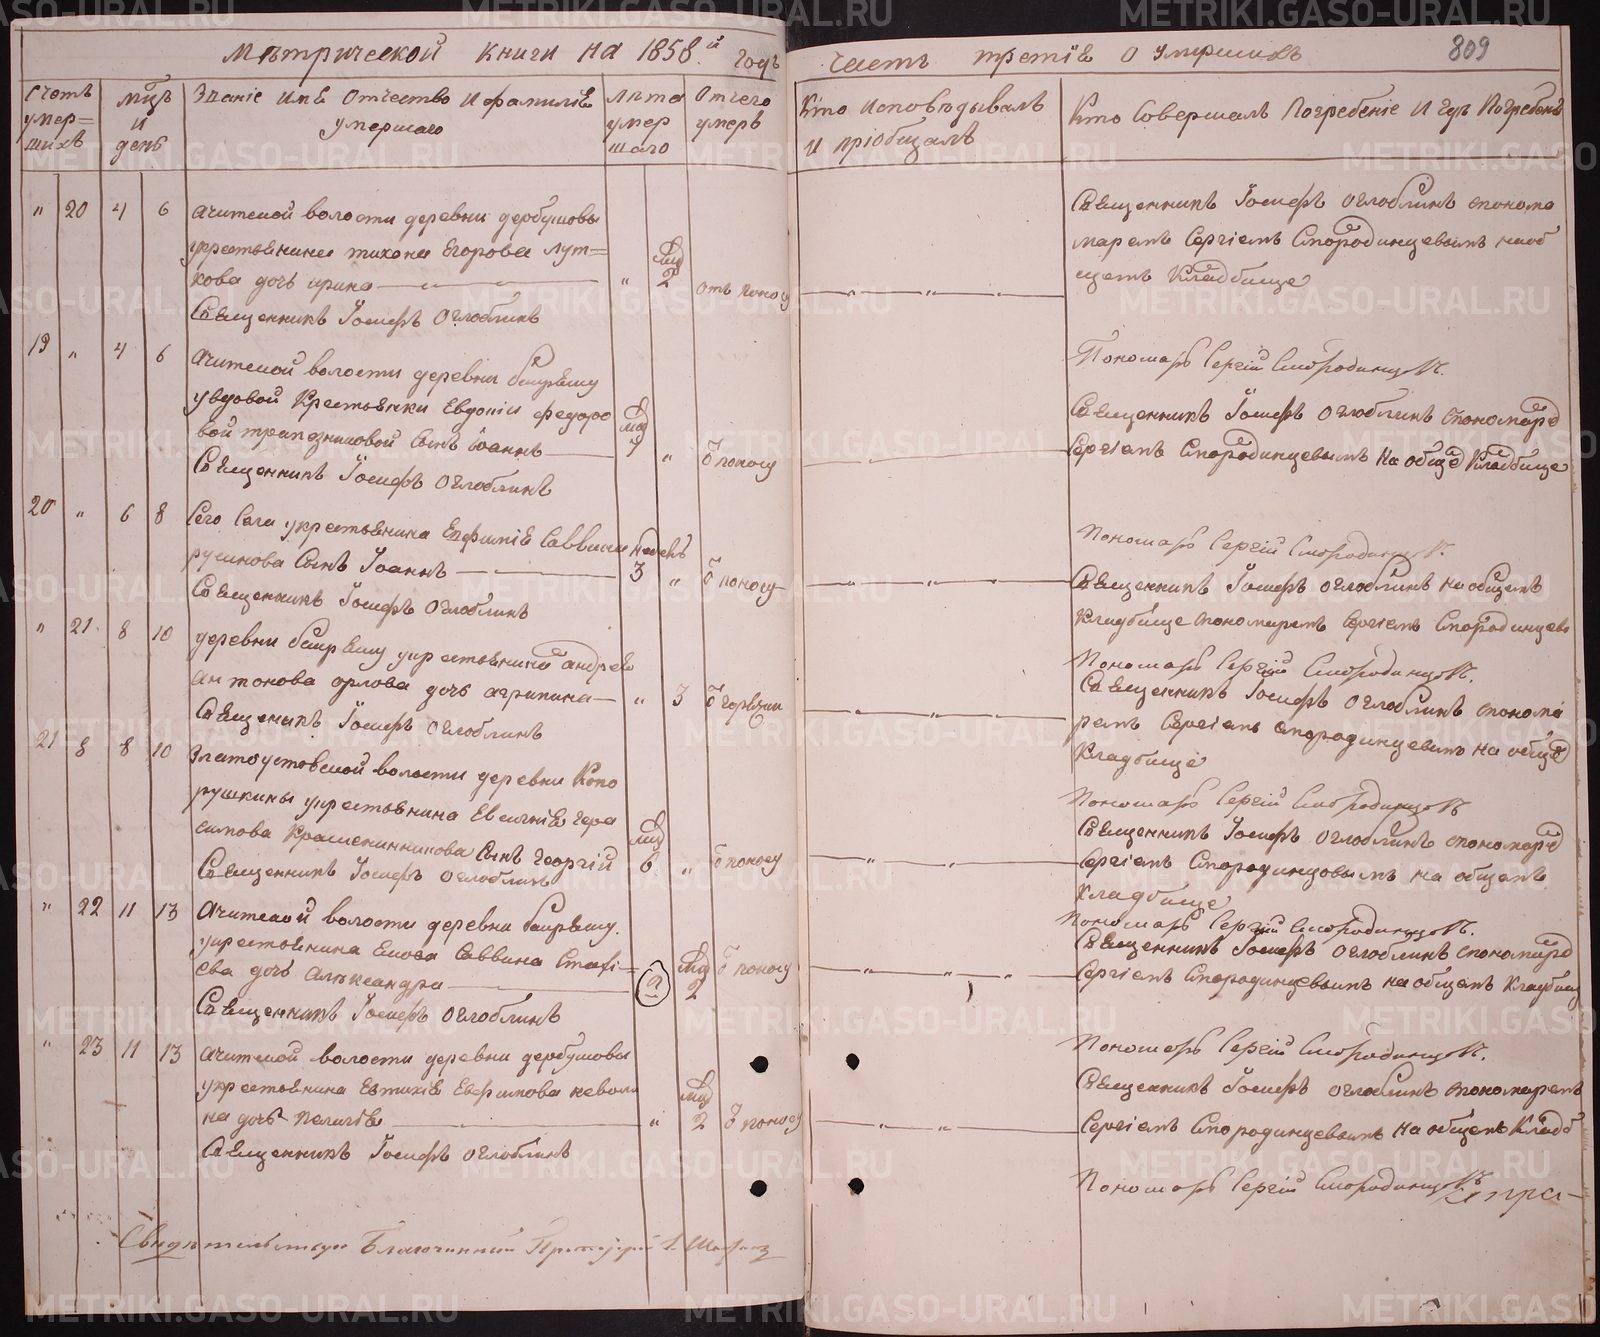 Метрической книги на 1858й годъ
часть третiя о умершихъ
809
Счетъ умер=шихъ
мцъ и день
Званiе имя отчество и фамилiя умершаго
лѣта умер шаго
отчего умеръ
Кто исповѣдывалъ и прiобщалъ
Кто совершалъ погребенiе и гдѣ погребенъ
" 20 4 6
Ачитской волости деревни дербушовы
укрестьянина тихона Егорова лут=
кова дочь ирина " 2 отъ поносу
Священникъ Iосифъ Оглоблинъ
Священникъ Iосифъ Оглоблинъ спонома
маремъ Сергiемъ Смородинцевымъ наоб
щемъ Кладбище
Пономарь Сергiй Смородинцовъ.
19 " 4 6
Ачитской волости деревни
увдовой Крестьянки Евдокiи федоро
вой трапезниковой сынъ Iоаннъ 7 " поносу
Священникъ Iосифъ Оглоблинъ
Священникъ Iосифъ Оглоблинъ спономаре
Сергiемъ Смородинцевымъ на обще Кладбище
Пономарь Сергiй Смородинцовъ.
20 " 6 8
Сего Села укрестьянина Евфимiя Саввина недель
русинова Сынъ Iоаннъ 3 " поносу
Священникъ Iосифъ Оглоблинъ
Священникъ Iосифъ Оглоблинъ наобщемъ
Кладбище спономаремъ Сергiемъ Смородинцевы
Пономарь Сергiй Смородинцовъ.
" 21 8 10
деревни укрестьянина андрея
антонова орлова дочь агрипина " 3
Священикъ Iосифъ Оглоблинъ
Священникъ Iосифъ Оглоблинъ спонома
ремъ Сергiемъ Смородинцевымъ на обще
Кладбище
Пономарь Сергiй Смородинцовъ
21 8 8 10
Златоустовской волости деревни Копо
рушкины укрестьянина Евсигнiя гера
симова Крашенинникова Сынъ Георгiй 6 " поносу
Священникъ Iосифъ Оглоблинъ
Священникъ Iосифъ Оглоблинъ спономаре
Сергiемъ Смородинцовымъ на общемъ
Кладбище
Пономарь Сергiй Смородинцовъ.
" 22 11 13
Ачитской волости деревни
укрестьянина Саввина
ева дочь Александра 2 поносу
Священникъ Iосифъ Оглоблинъ
Священникъ Iосифъ Оглоблинъ спономаре
Сергiемъ Смородинцевымъ наобщемъ Кладбищ
Пономарь Сергiй Смородинцовъ.
" 23 11 13
Ачитской волости деревни дербушовы
укрестьянина Евтихiя Евфимова неволи
на дочь Пелагiя " 2 поносу
Священникъ Iосифъ Оглоблинъ
Священникъ Iосифъ Оглоблинъ спономаремъ
Сергiемъ Смородинцевымъ на общемъ Кладб
Пономарь Сергiй Смородинцовъ
Свидѣтельствую Благочинный Протоiерей
METRIKI.GASO-URAL.RU